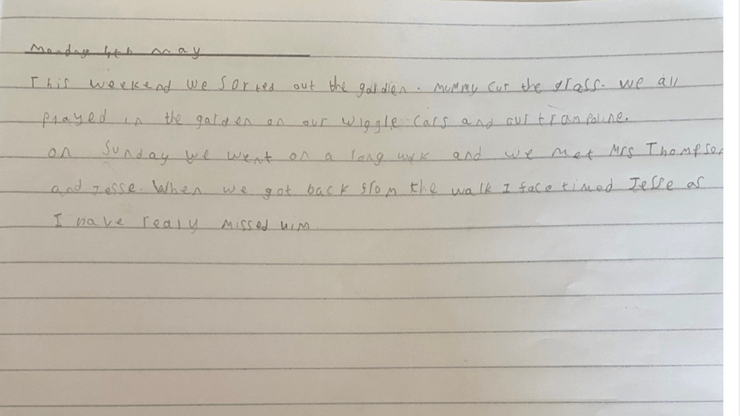 Monday 4th may
This weekend we sorted out the garden. Mummy cut the grass. we all
played in the garden on our wiggle cars and our trampoline.
on Sunday we went on a long and we met Mrs Thompson
and Jesse. When we got back from the walk I face timed Jesse as
I have realy missed him